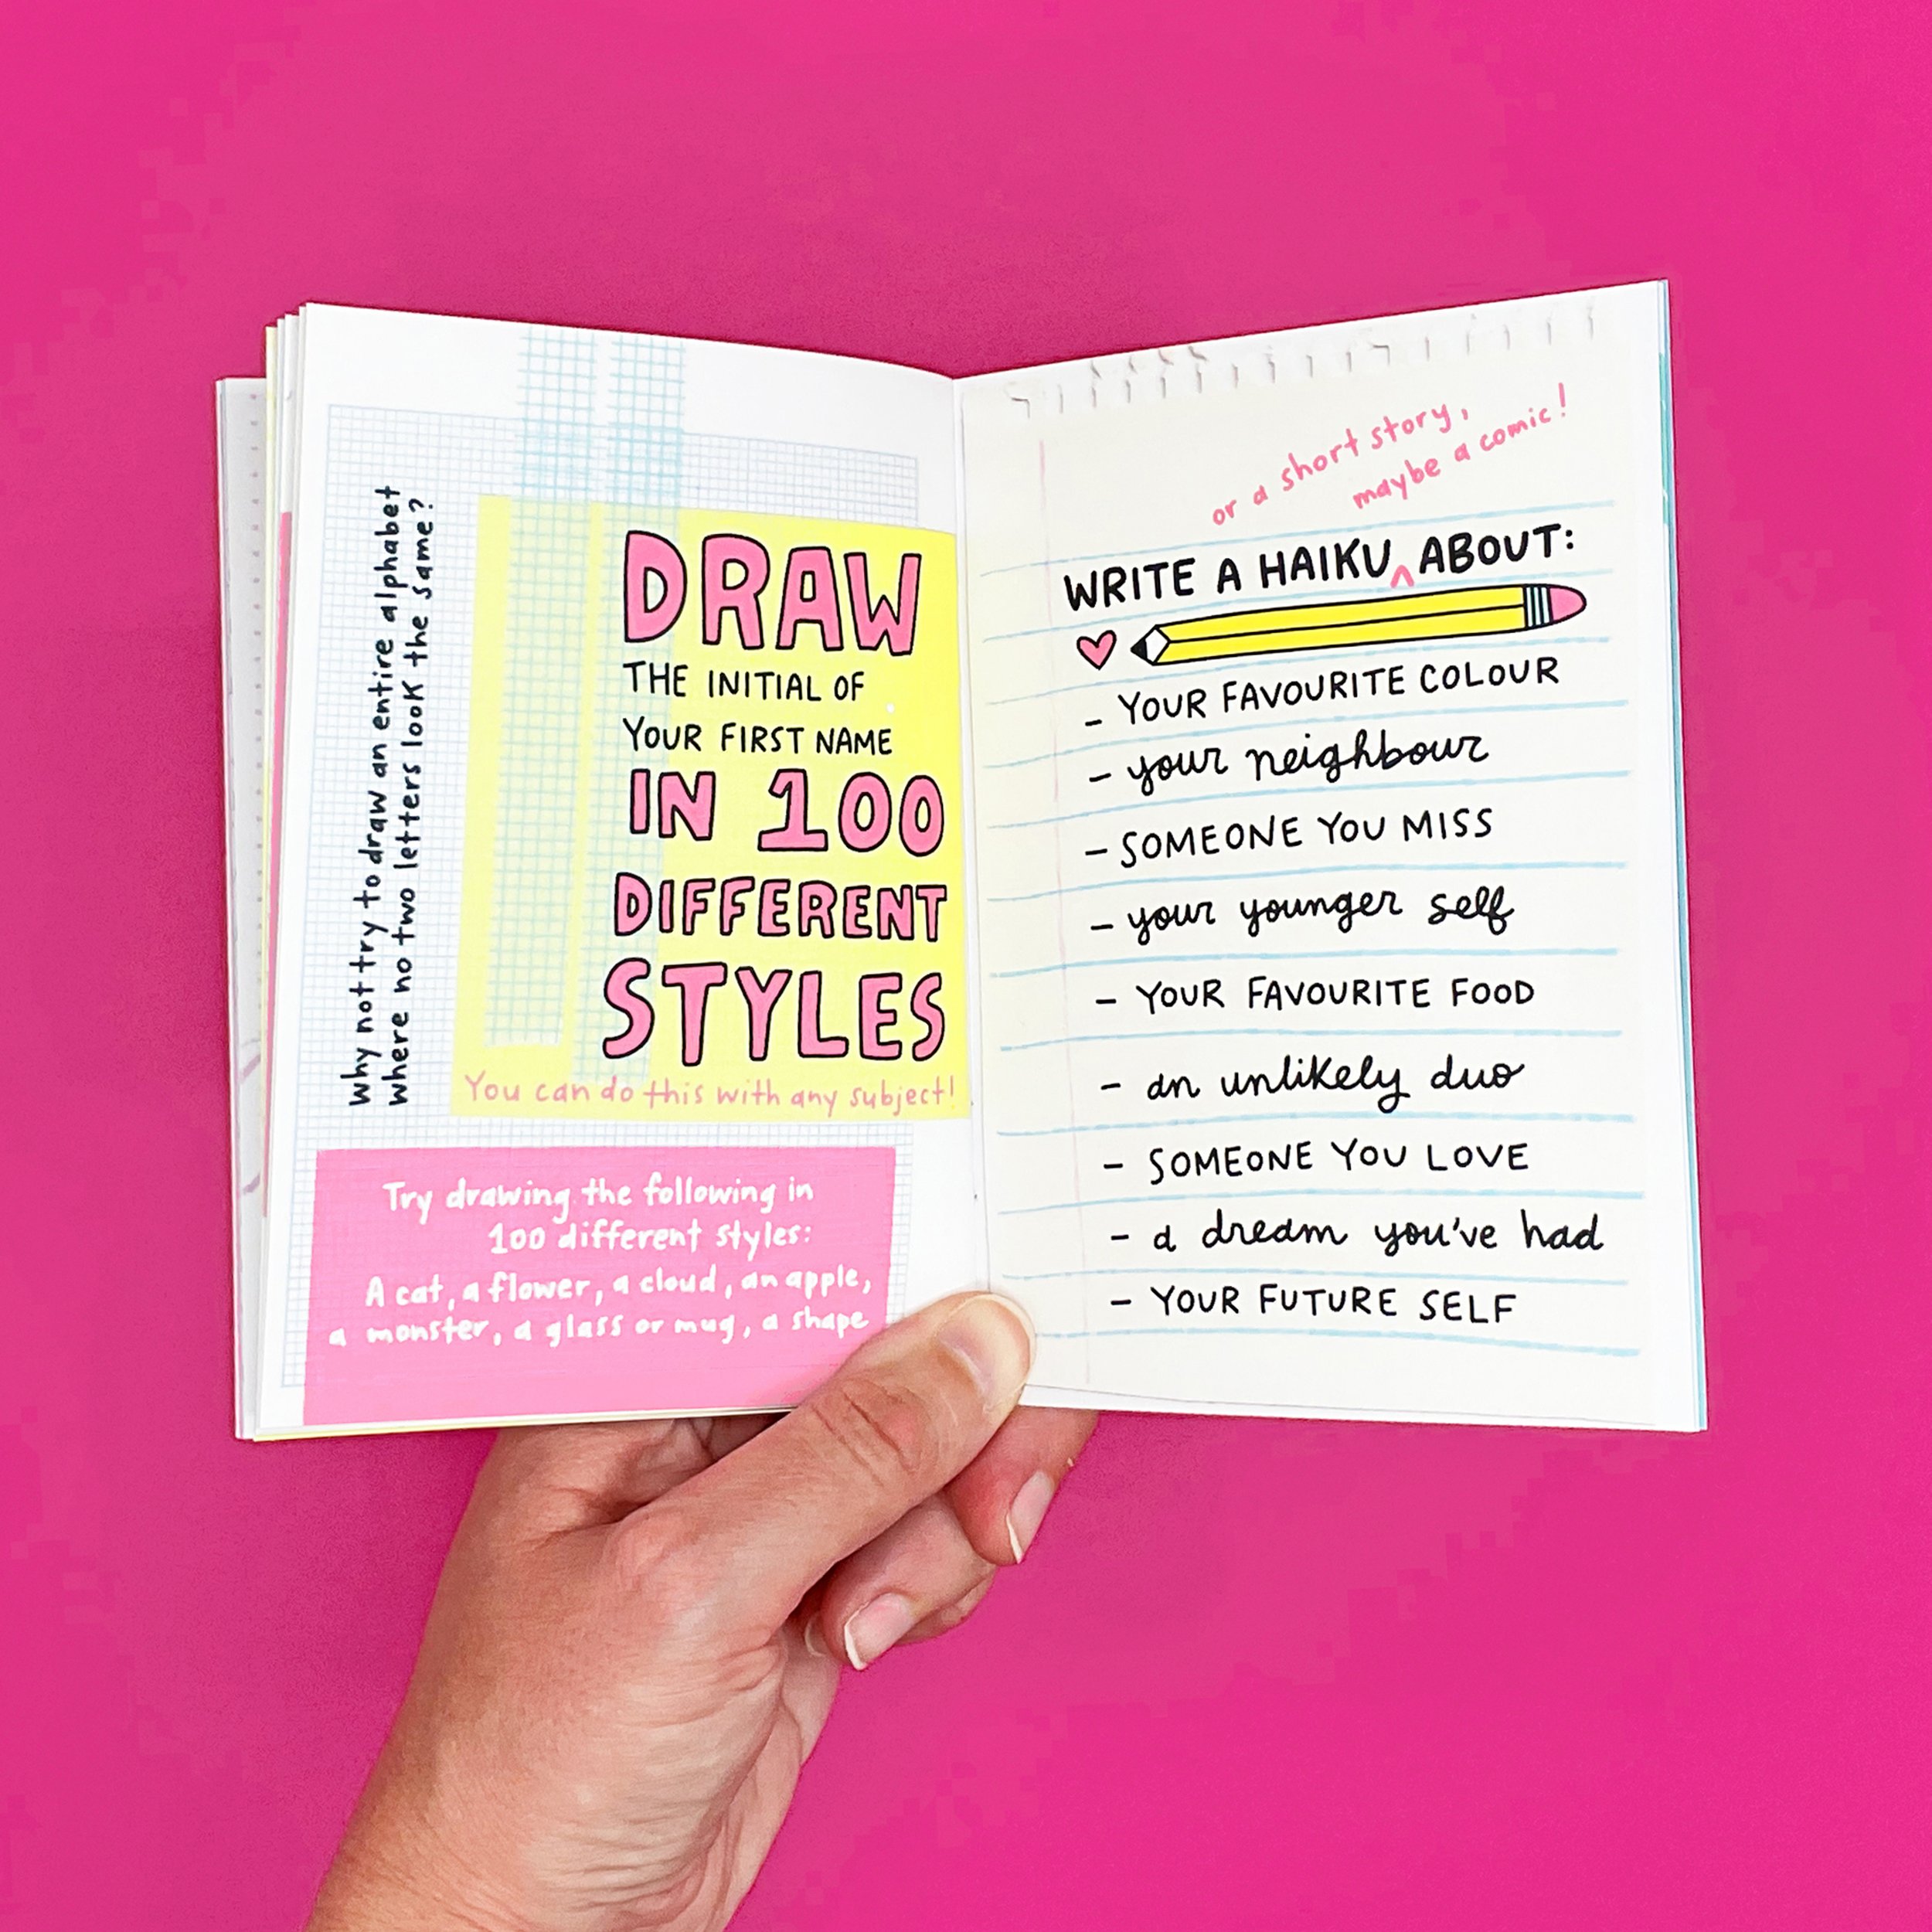 Why not try to draw an entire alphabet
where no two letters look the same?
DRAW
THE INITIAL OF
YOUR FIRST NAME
IN 100
DIFFERENT
STYLES
You can do this with any subject!
Try drawing the following in
100 different styles:
A cat, a flower, a cloud, an apple,
a monster, a glass or mug, a shape
or a short story,
maybe a comic!
WRITE A HAIKU ^ ABOUT:
- YOUR FAVOURITE COLOUR
- your neighbour
- SOMEONE YOU MISS
- your younger self
- YOUR FAVOURITE FOOD
- an unlikely duo
- SOMEONE YOU LOVE
- a dream you've had
- YOUR FUTURE SELF